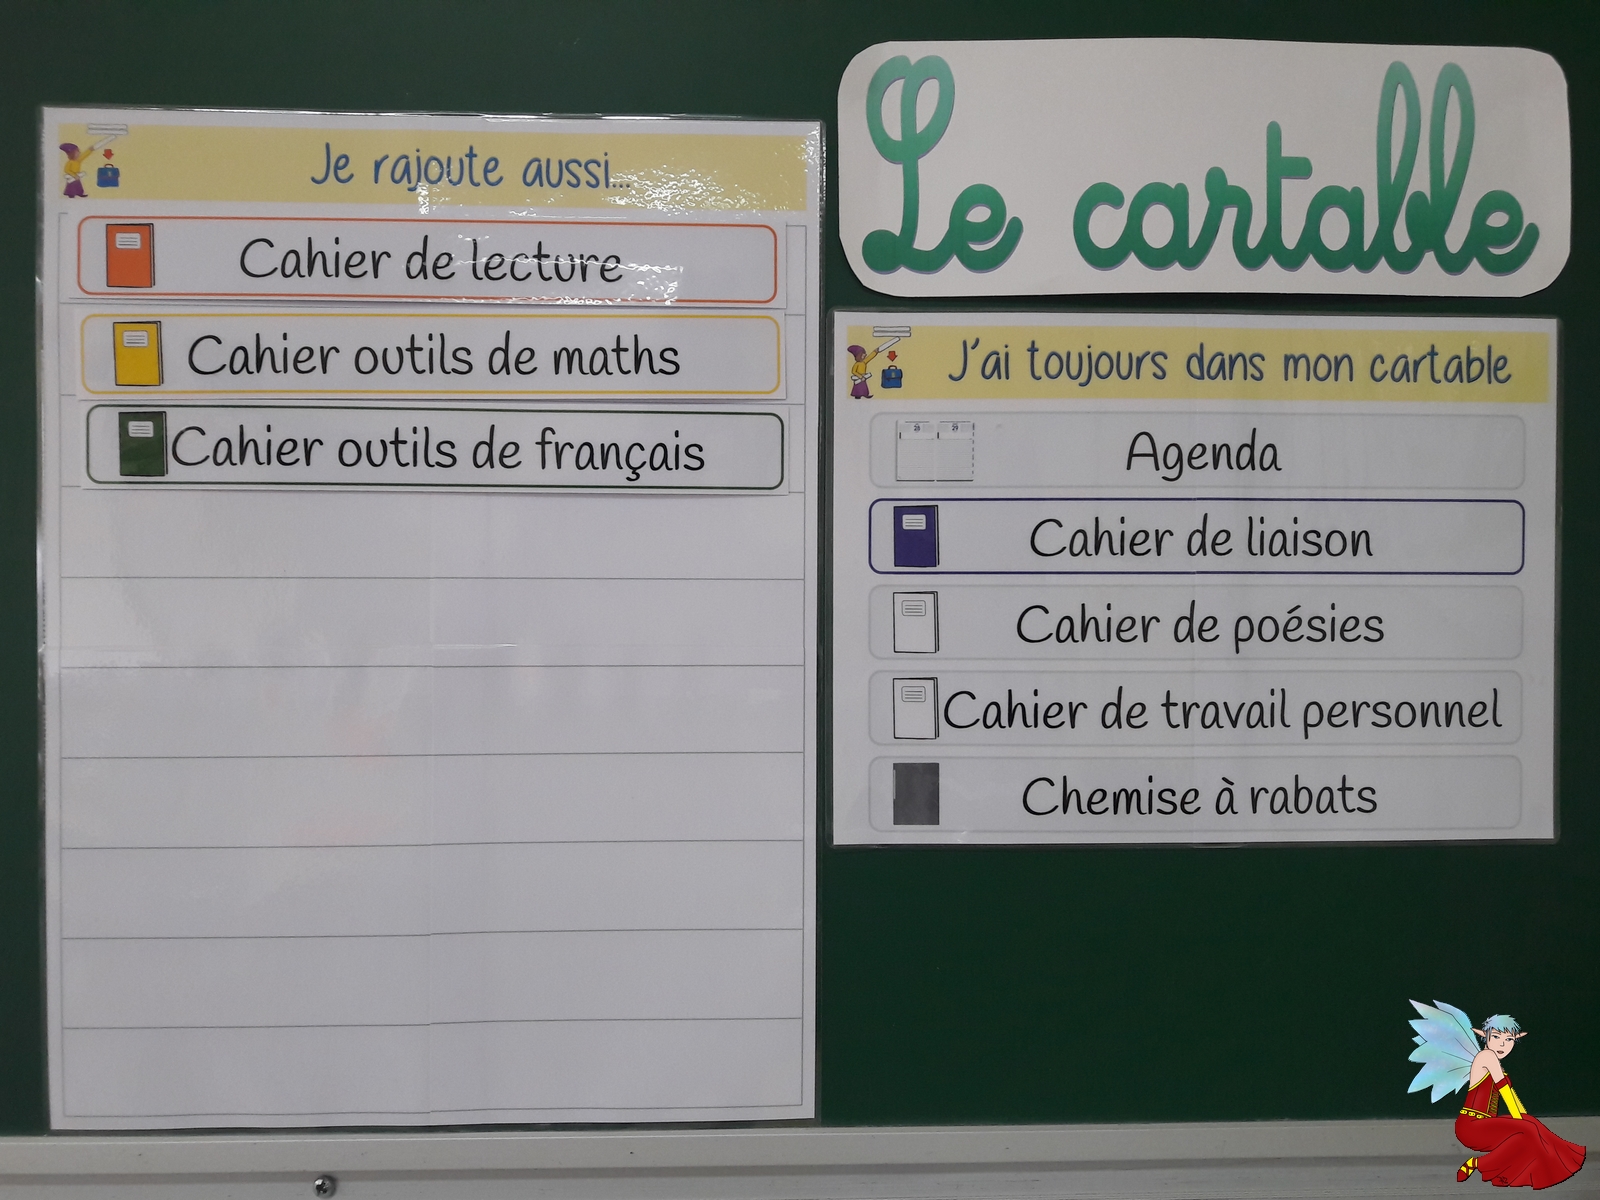 Le cartable
Je rajoute aussi...
Cahier de lecture
Cahier outils de maths
Cahier outils de français
J'ai toujours dans mon cartable
Agenda
Cahier de liaison
Cahier de poésies
Cahier de travail personnel
Chemise à rabats